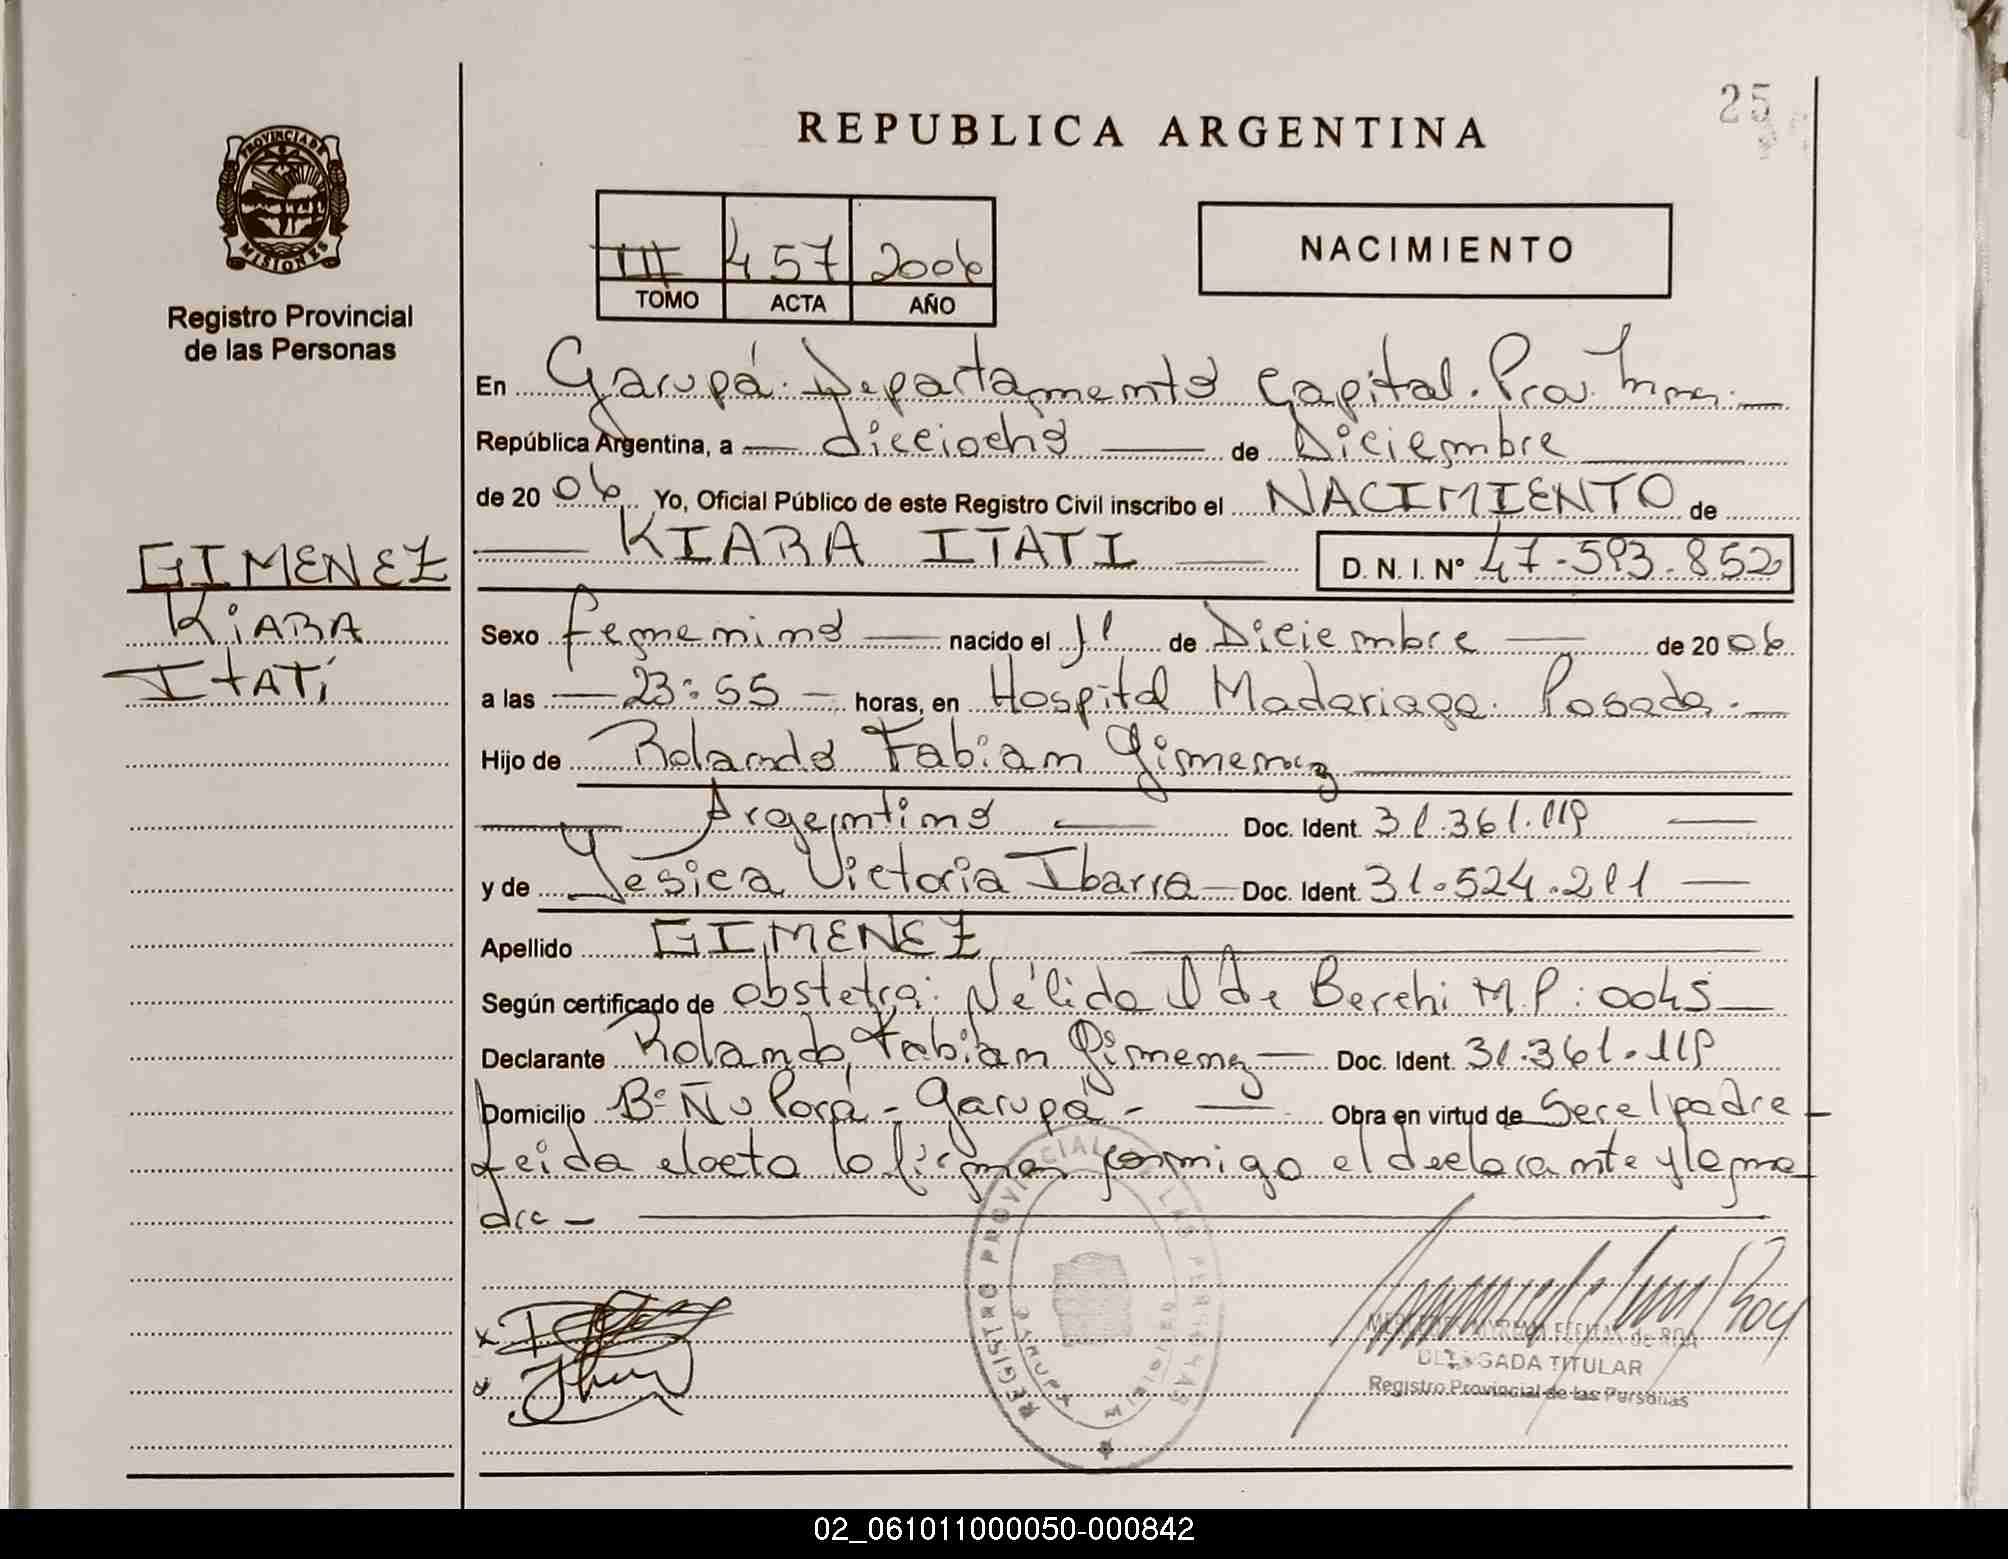 25
REPUBLICA ARGENTINA
PROVINCIA DE
MISIONES
Registro Provincial
de las Personas
III 457 2006
TOMO ACTA AÑO
NACIMIENTO
En Garupá. Departamento Capital. Prov.
República Argentina, a dieciocho de Diciembre
de 20 06 Yo, Oficial Público de este Registro Civil inscribo el NACIMIENTO de
KIARA ITATI D. N. I. Nº 47.593.852
GIMENEZ
KiARA
ItATi
Sexo femenino nacido el de Diciembre de 20 06
a las 23:55 horas, en Hospital Madariaga. Posadas.
Hijo de Rolando Fabian Gimenez
Argentino Doc. Ident. 31.361.119
y de Yesica Victoria Ibarra Doc. Ident. 31.524.211
Apellido GIMENEZ
Según certificado de obstetra: Nélida de Berchi M.P: 0045
Declarante Rolando Fabian Gimenez Doc. Ident. 31.361.119
Domicilio Bº Ñu Porá - Garupá - Obra en virtud de Ser el padre
Leida el acta lo firman conmigo el declarante y la ma
dre -
REGISTRO PROVINCIAL DE LAS PERSONAS
GARUPA MISIONES
FREITAS de ROA
DELEGADA TITULAR
Registro Provincial de las Personas
02_061011000050-000842